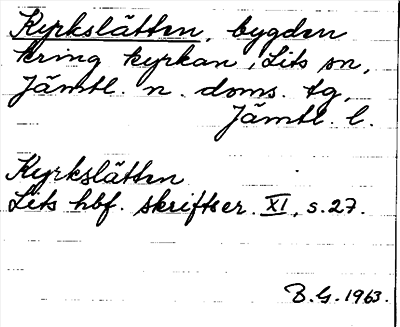 Kyrkslätten, bygden
kring kyrkan, Lits sn,
Jämtl. n. doms. tg,
Jämtl. l.
Kyrkslätten
Lits hbf. skriftser. XI, s. 27.
B.G. 1963.